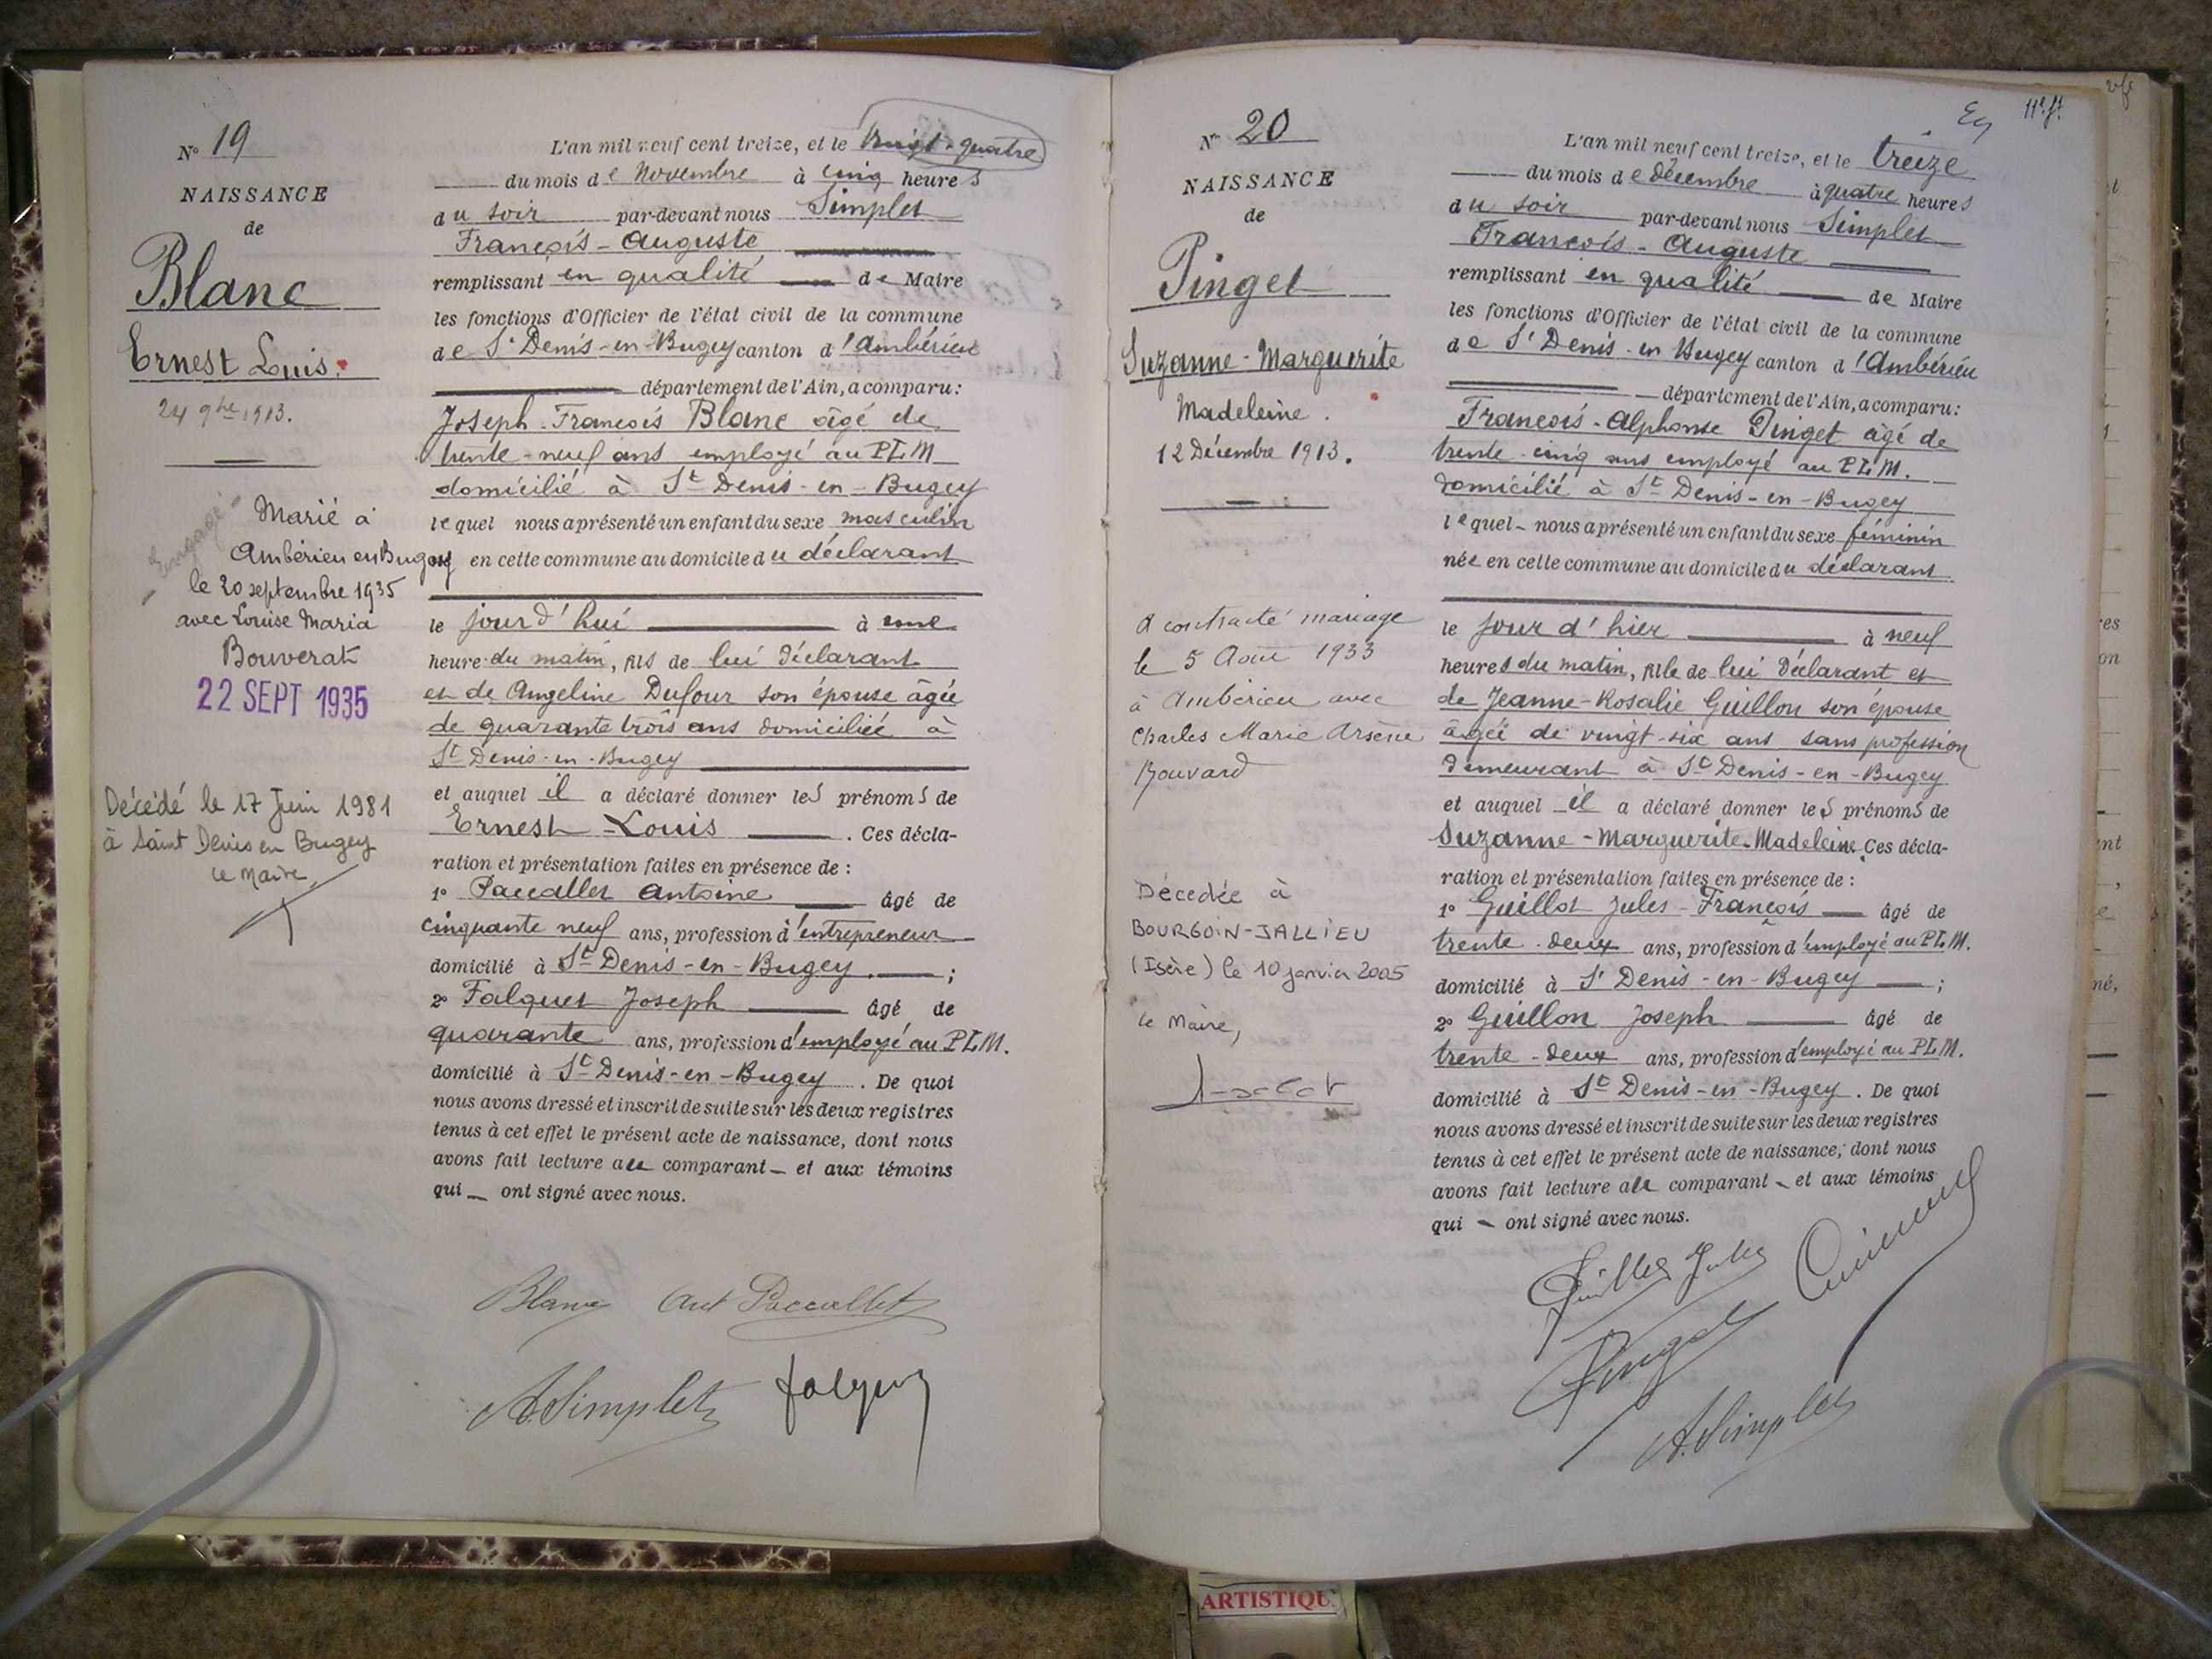 N° 19
NAISSANCE
de
Blanc
Ernest Louis.
24 9bre 1913.
Engagé
Marié à
Ambérieu en Bugey
le 20 septembre 1935
avec Louise Maria
Bouverat
22 SEPT 1935
Décédé le 17 Juin 1981
à Saint Denis en Bugey
Le Maire,
L'an mil neuf cent treize, et le vingt-quatre
du mois de Novembre à cinq heures
du soir par-devant nous Simplet
François-Auguste
remplissant en qualité de Maire
les fonctions d'Officier de l'état civil de la commune
de St Denis-en-Bugey canton d'Ambérieu
département de l'Ain, a comparu:
Joseph-François Blanc âgé de
trente-neuf ans employé au P.L.M
domicilié à St Denis-en-Bugey
lequel nous a présenté un enfant du sexe masculin
en cette commune au domicile du déclarant
le jour d'hui à une
heure du matin, fils de lui déclarant
et de Angeline Dufour son épouse âgée
de quarante trois ans domiciliée à
St Denis-en-Bugey
et auquel il a déclaré donner les prénoms de
Ernest-Louis. Ces décla-
ration et présentation faites en présence de:
1° Paccallet Antoine âgé de
cinquante neuf ans, profession d'entrepreneur
domicilié à St Denis-en-Bugey;
2° Falquet Joseph âgé de
quarante ans, profession d'employé au P.L.M.
domicilié à St Denis-en-Bugey. De quoi
nous avons dressé et inscrit de suite sur les deux registres
tenus à cet effet le présent acte de naissance, dont nous
avons fait lecture au comparant et aux témoins
qui ont signé avec nous.
Blanc Ant Paccallet
A. Simplet Falquet
N° 20
NAISSANCE
de
Pinget
Suzanne-Marguerite
Madeleine.
12 Décembre 1913.
A contracté mariage
le 5 Août 1933
à Ambérieu avec
Charles Marie Arsène
Bouvard
Décédée à
BOURGOIN-JALLIEU
(Isère) le 10 janvier 2005
Le Maire,
11e ft
L'an mil neuf cent treize, et le treize
du mois de décembre à quatre heures
du soir par-devant nous Simplet
François-Auguste
remplissant en qualité de Maire
les fonctions d'Officier de l'état civil de la commune
de St Denis-en Bugey canton d'Ambérieu
département de l'Ain, a comparu:
François-Alphonse Pinget âgé de
trente-cinq ans employé au P.L.M.
domicilié à St Denis-en-Bugey
lequel nous a présenté un enfant du sexe féminin
née en cette commune au domicile du déclarant
le jour d'hier à neuf
heures du matin, fille de lui déclarant et
de Jeanne-Rosalie Guillon son épouse
âgée de vingt-six ans sans profession
demeurant à St Denis-en-Bugey
et auquel il a déclaré donner les prénoms de
Suzanne-Marguerite-Madeleine. Ces décla-
ration et présentation faites en présence de:
1° Guillot Jules-François âgé de
trente-deux ans, profession d'employé au P.L.M.
domicilié à St Denis-en-Bugey;
2° Guillon Joseph âgé de
trente-deux ans, profession d'employé au P.L.M.
domicilié à St Denis-en-Bugey. De quoi
nous avons dressé et inscrit de suite sur les deux registres
tenus à cet effet le présent acte de naissance, dont nous
avons fait lecture au comparant et aux témoins
qui ont signé avec nous.
Guillot Jules
Pinget
A. Simplet
ARTISTIQU